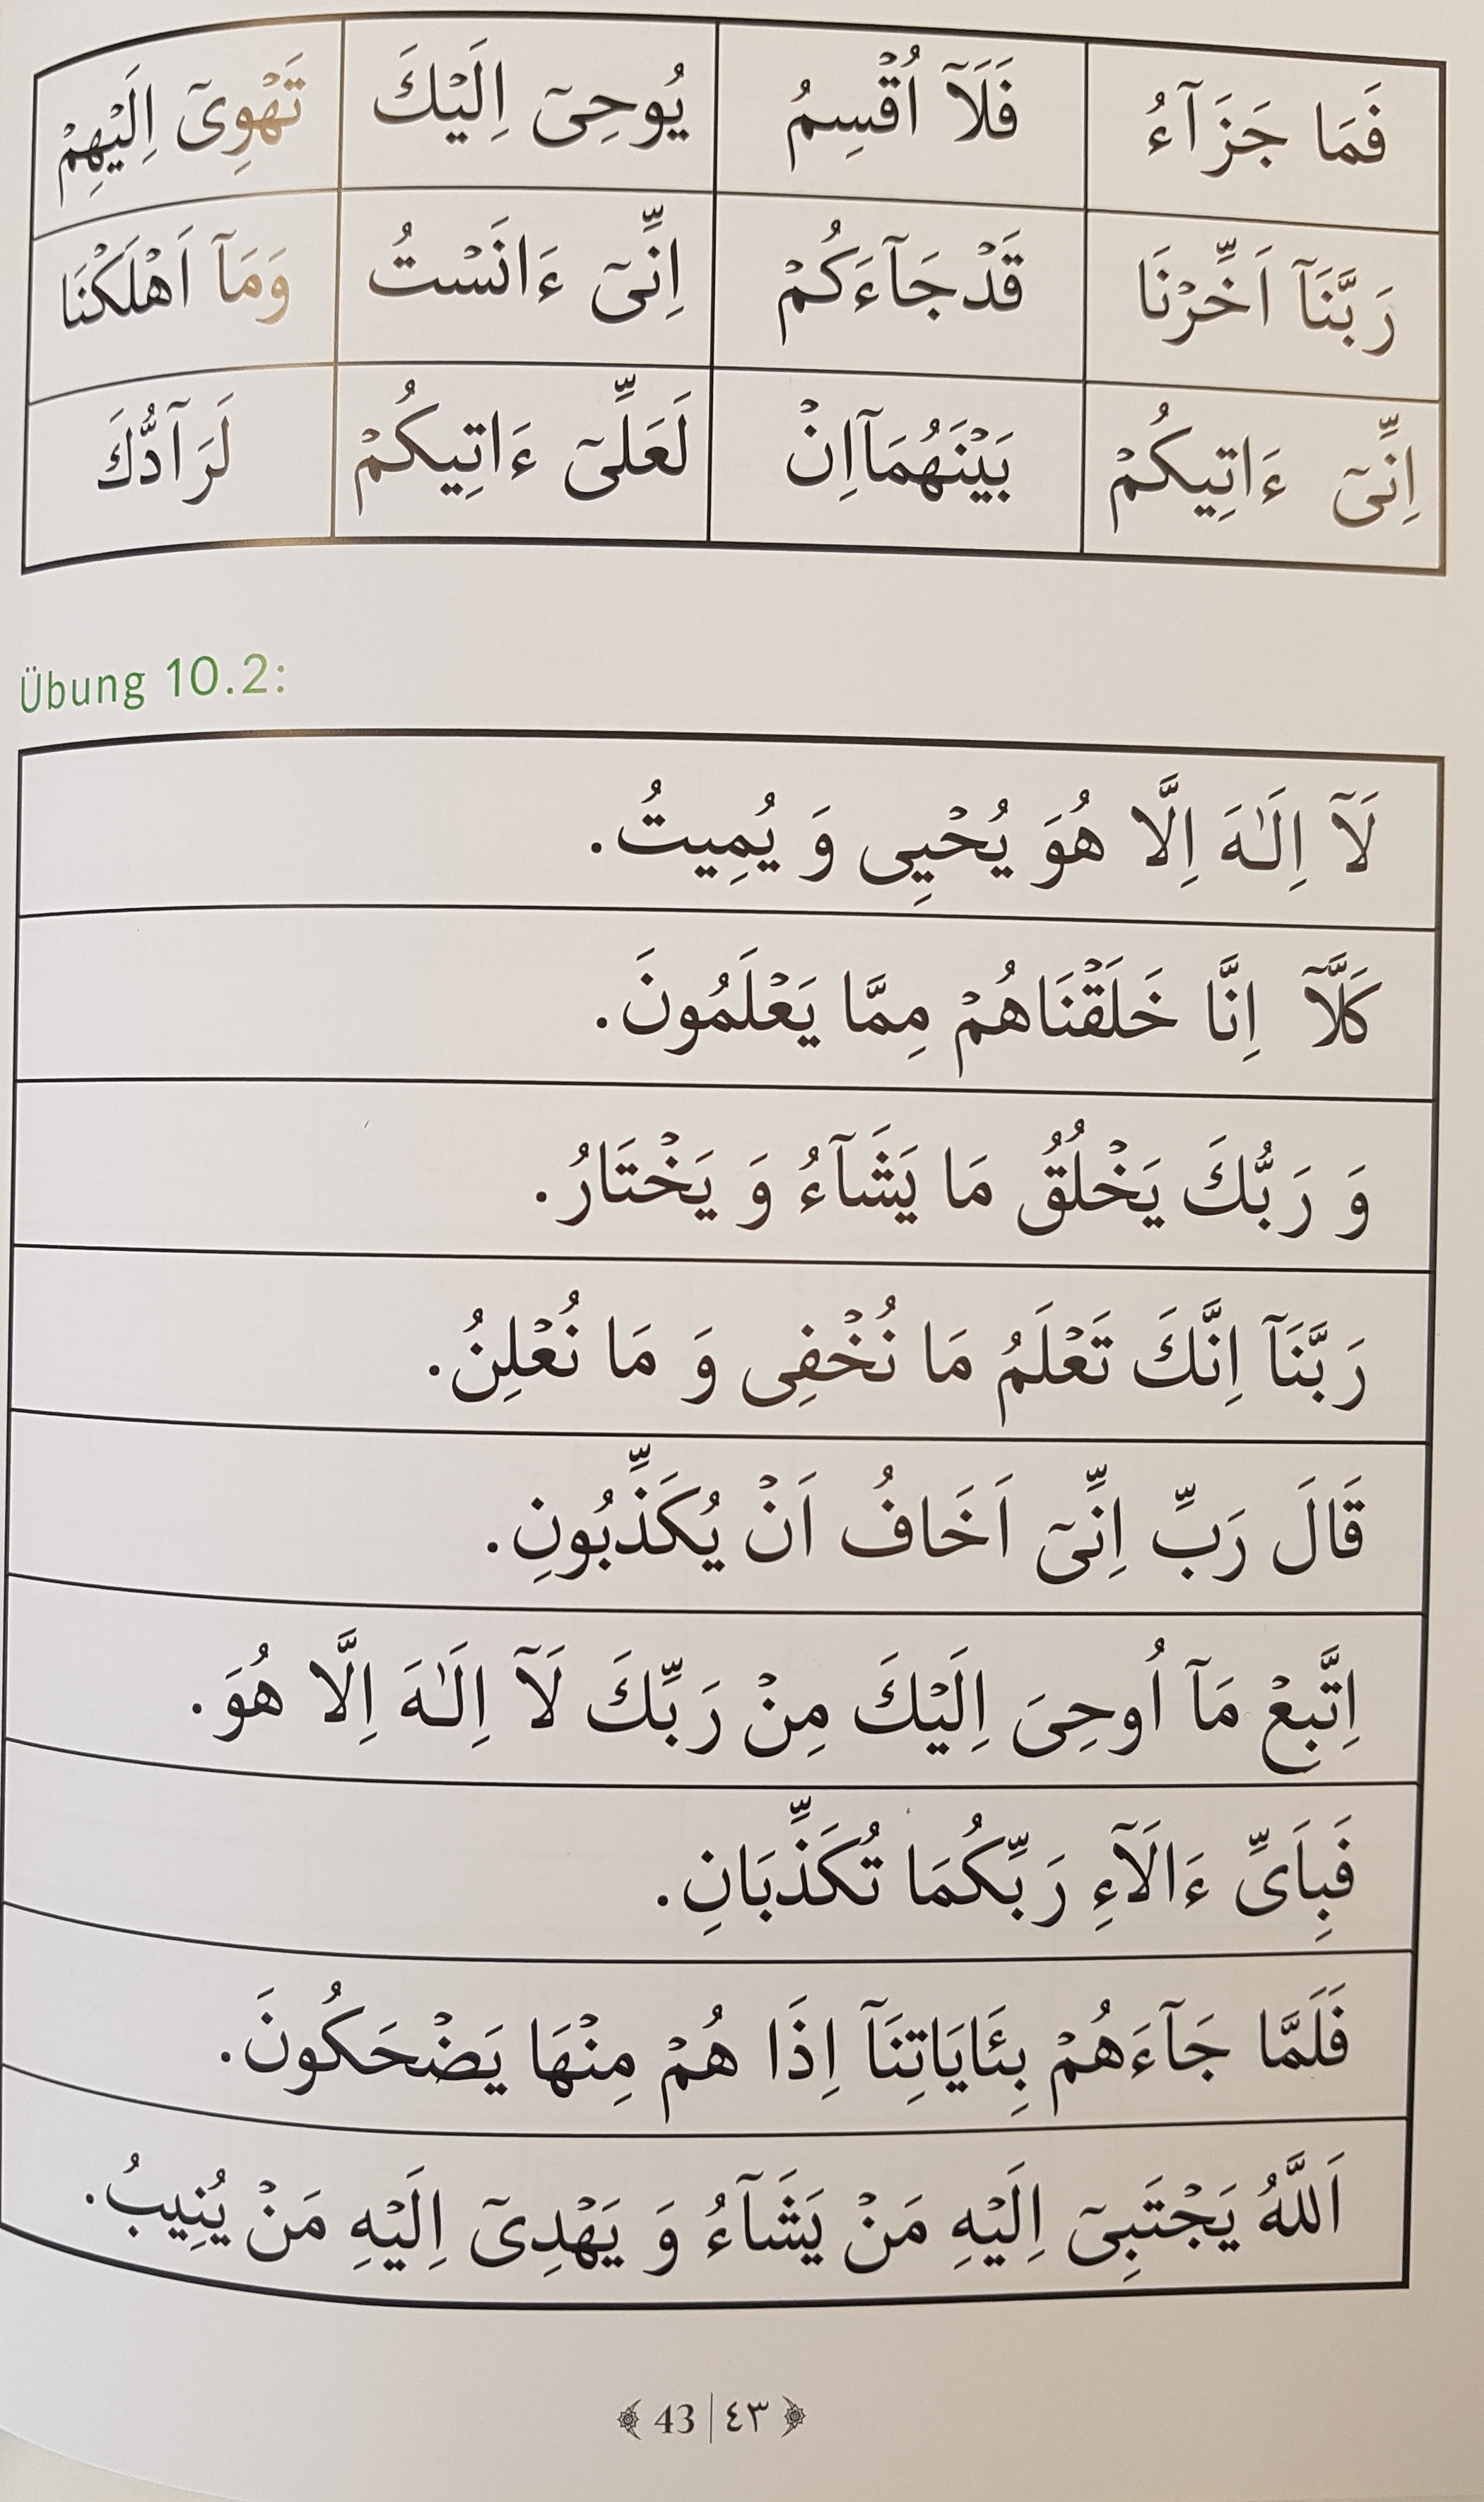 فَمَا جَزَآءُ فَلَآ اُقْسِمُ يُوحِىٓ اِلَيْكَ تَهْوِىٓ اِلَيْهِمْ
رَبَّنَآ اَخِّرْنَا قَدْ جَآءَكُمْ اِنِّىٓ ءَانَسْتُ وَمَآ اَهْلَكْنَا
اِنِّىٓ ءَاتِيكُمْ بَيْنَهُمَآ اِنْ لَعَلِّىٓ ءَاتِيكُمْ لَرَآدُّكَ
Übung 10.2:
لَآ اِلَـٰهَ اِلَّا هُوَ يُحْيِى وَ يُمِيتُ.
كَلَّآ اِنَّا خَلَقْنَاهُمْ مِمَّا يَعْلَمُونَ.
وَ رَبُّكَ يَخْلُقُ مَا يَشَآءُ وَ يَخْتَارُ.
رَبَّنَآ اِنَّكَ تَعْلَمُ مَا نُخْفِى وَ مَا نُعْلِنُ.
قَالَ رَبِّ اِنِّىٓ اَخَافُ اَنْ يُكَذِّبُونِ.
اِتَّبِعْ مَآ اُوحِىَ اِلَيْكَ مِنْ رَبِّكَ لَآ اِلَـٰهَ اِلَّا هُوَ.
فَبِاَىِّ ءَالَآءِ رَبِّكُمَا تُكَذِّبَانِ.
فَلَمَّا جَآءَهُمْ بِئَايَاتِنَآ اِذَا هُمْ مِنْهَا يَضْحَكُونَ.
اَللّٰهُ يَجْتَبِىٓ اِلَيْهِ مَنْ يَشَآءُ وَ يَهْدِىٓ اِلَيْهِ مَنْ يُنِيبُ.
43 | ٤٣